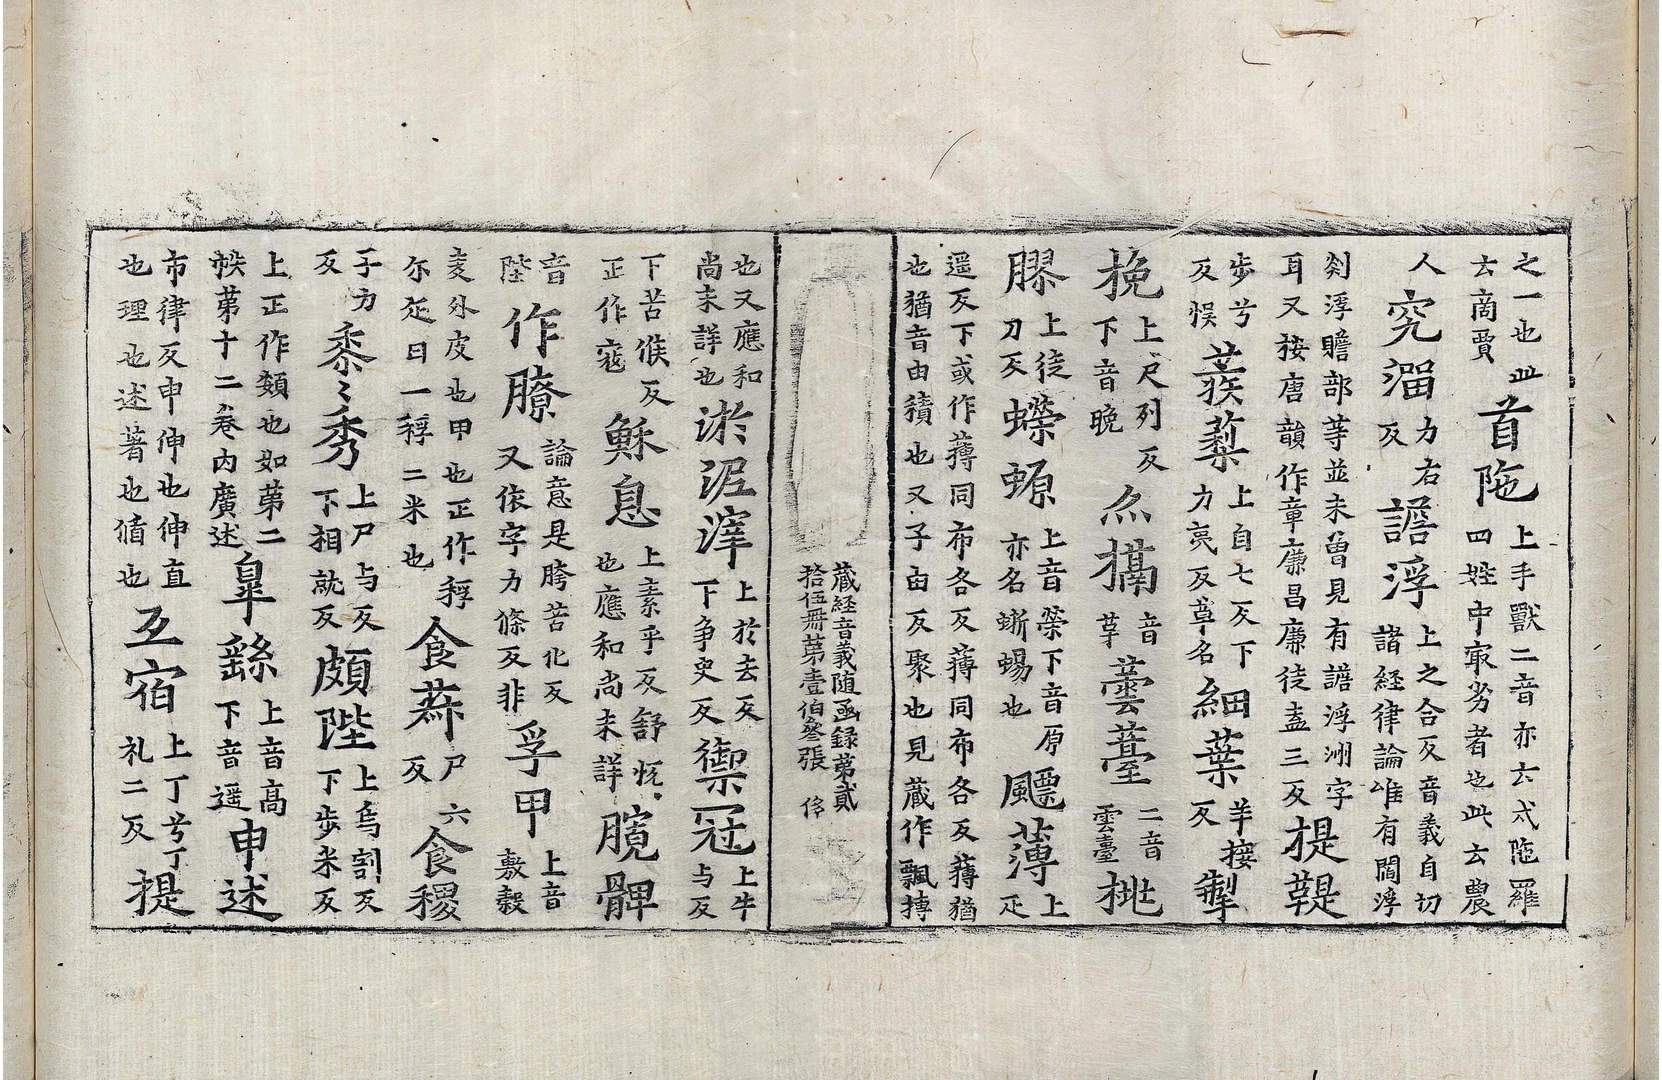 之一也此首陁上手獸二音亦云式陁羅
云啇賈四姓中㝡劣者也此云農
人究溜力右反譫浮上之合反音義自切諸經律論唯有閻浮
剡浮瞻部等並未曽見有譫浮洲字
耳又按唐韻作章廉昌廉徒盍三反提鞮
步兮反悞蒺蔾上自七反下力亮反草名細葉羊接反掣
挽上尺列反下音晚㸦摛音草蕓薹二音雲臺桃
膠上徒刀反蠑螈上音榮下音原亦名蜥蜴也飃薄上疋
遥反下或作䔇同布各反薄同布各反䔇猶
也猶音由積也又子由反聚也見蔵作飄摶
蔵経音義随函録第貳
拾伍冊第壹伯叄張 侈
也又應和尚未詳也淤泥滓上於去反下争史反禦冠上牛与反
下苦候反正作寇穌息上素乎反舒悦也應和尚未詳臗髀
音陛作膫論意是胯苦化反又依字力條反非孚甲上音敷殼
麦外皮也甲也正作稃尓疋曰一稃二米也食粥尸六反食稷
子力反黍〻秀上尸与反下相就反頗陛上烏割反下步米反
上正作類也如第二帙第十二卷内廣述臯繇上音高下音遥申述
市律反申伸也伸直也理也述著也循也互宿上丁兮丁礼二反提